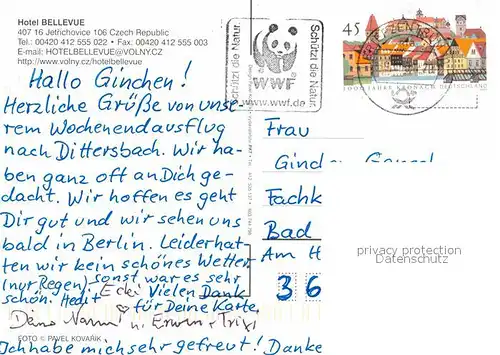 Hotel BELLEVUE
407 16 Jetřichovice 106 Czech Republic
Tel.: 00420 412 555 022 • Fax: 00420 412 555 003
E-mail: HOTELBELLEVUE@VOLNY.CZ
http://www.volny.cz/hotelbellevue
Hallo Ginchen!
Herzliche Grüße von unse-
rem Wochenendausflug
nach Dittersbach. Wir ha-
ben ganz oft an Dich ge-
dacht. Wir hoffen es geht
Dir gut und wir sehen uns
bald in Berlin. Leider hat-
ten wir kein schönes Wetter
(nur Regen), sonst war es sehr
schön. Hedit Ecki Vielen Dank
für Deine Karte,
Deine Nanni u. Erwin + Trixi
Ich habe mich sehr gefreut! Danke
FOTO © PAVEL KOVAŘÍK
Schützt die Natur.
WWF
www.wwf.de
Schützt die Natur.
45
BRIEFZENTRUM
1000 JAHRE KRONACH
Frau
Fachk
Bad
Am H
36
privacy protection
Datenschutz